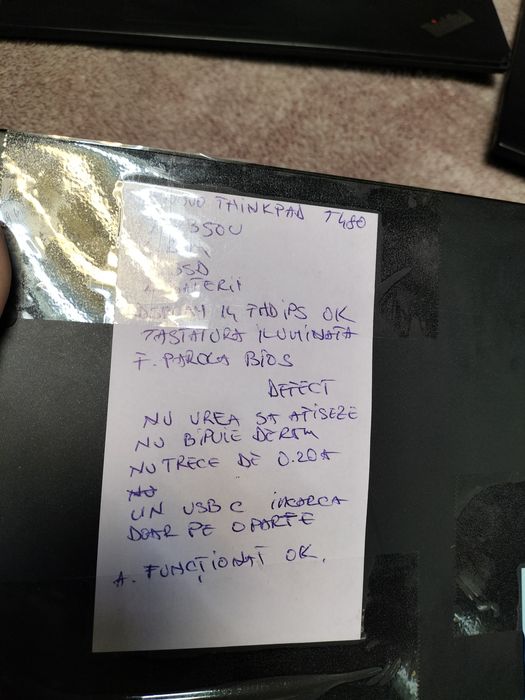 THINKPAD T480
350U
SSD
BATERII
DISPLAY 14 FHD iPS OK
TASTATURA iLUMINATA
F. PAROLA BiOS
DEFECT
NU VREA SA AFISEZE
NU BiPUiE DERAM
NU TRECE DE 0.20A
UN USB C iNCARCA
DOAR PE O PARTE
A. FUNCȚiONAT OK.